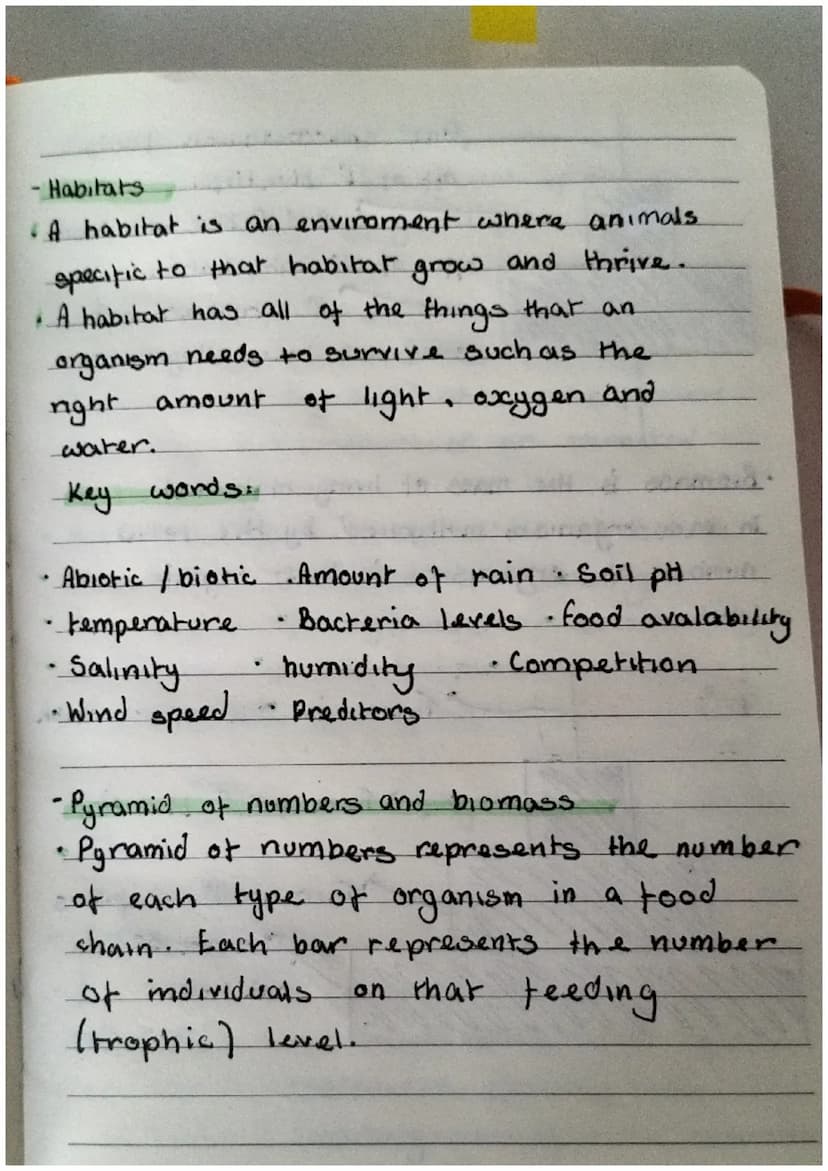 - Habitats
· A habitat is an enviroment where animals
specific to that habitat grow and thrive.
· A habitat has all of the things that an
organism needs to survive such as the
right amount of light, oxygen and
water.
Key words:
· Abiotic / biotic · Amount of rain · Soil pH
· temperature · Bacteria levels · food avalability
· Salinity · humidity · Competition
· Wind speed · Preditors
- Pyramid of numbers and biomass
· Pyramid of numbers represents the number
of each type of organism in a food
chain. Each bar represents the number
of individuals on that feeding
(trophic) level.